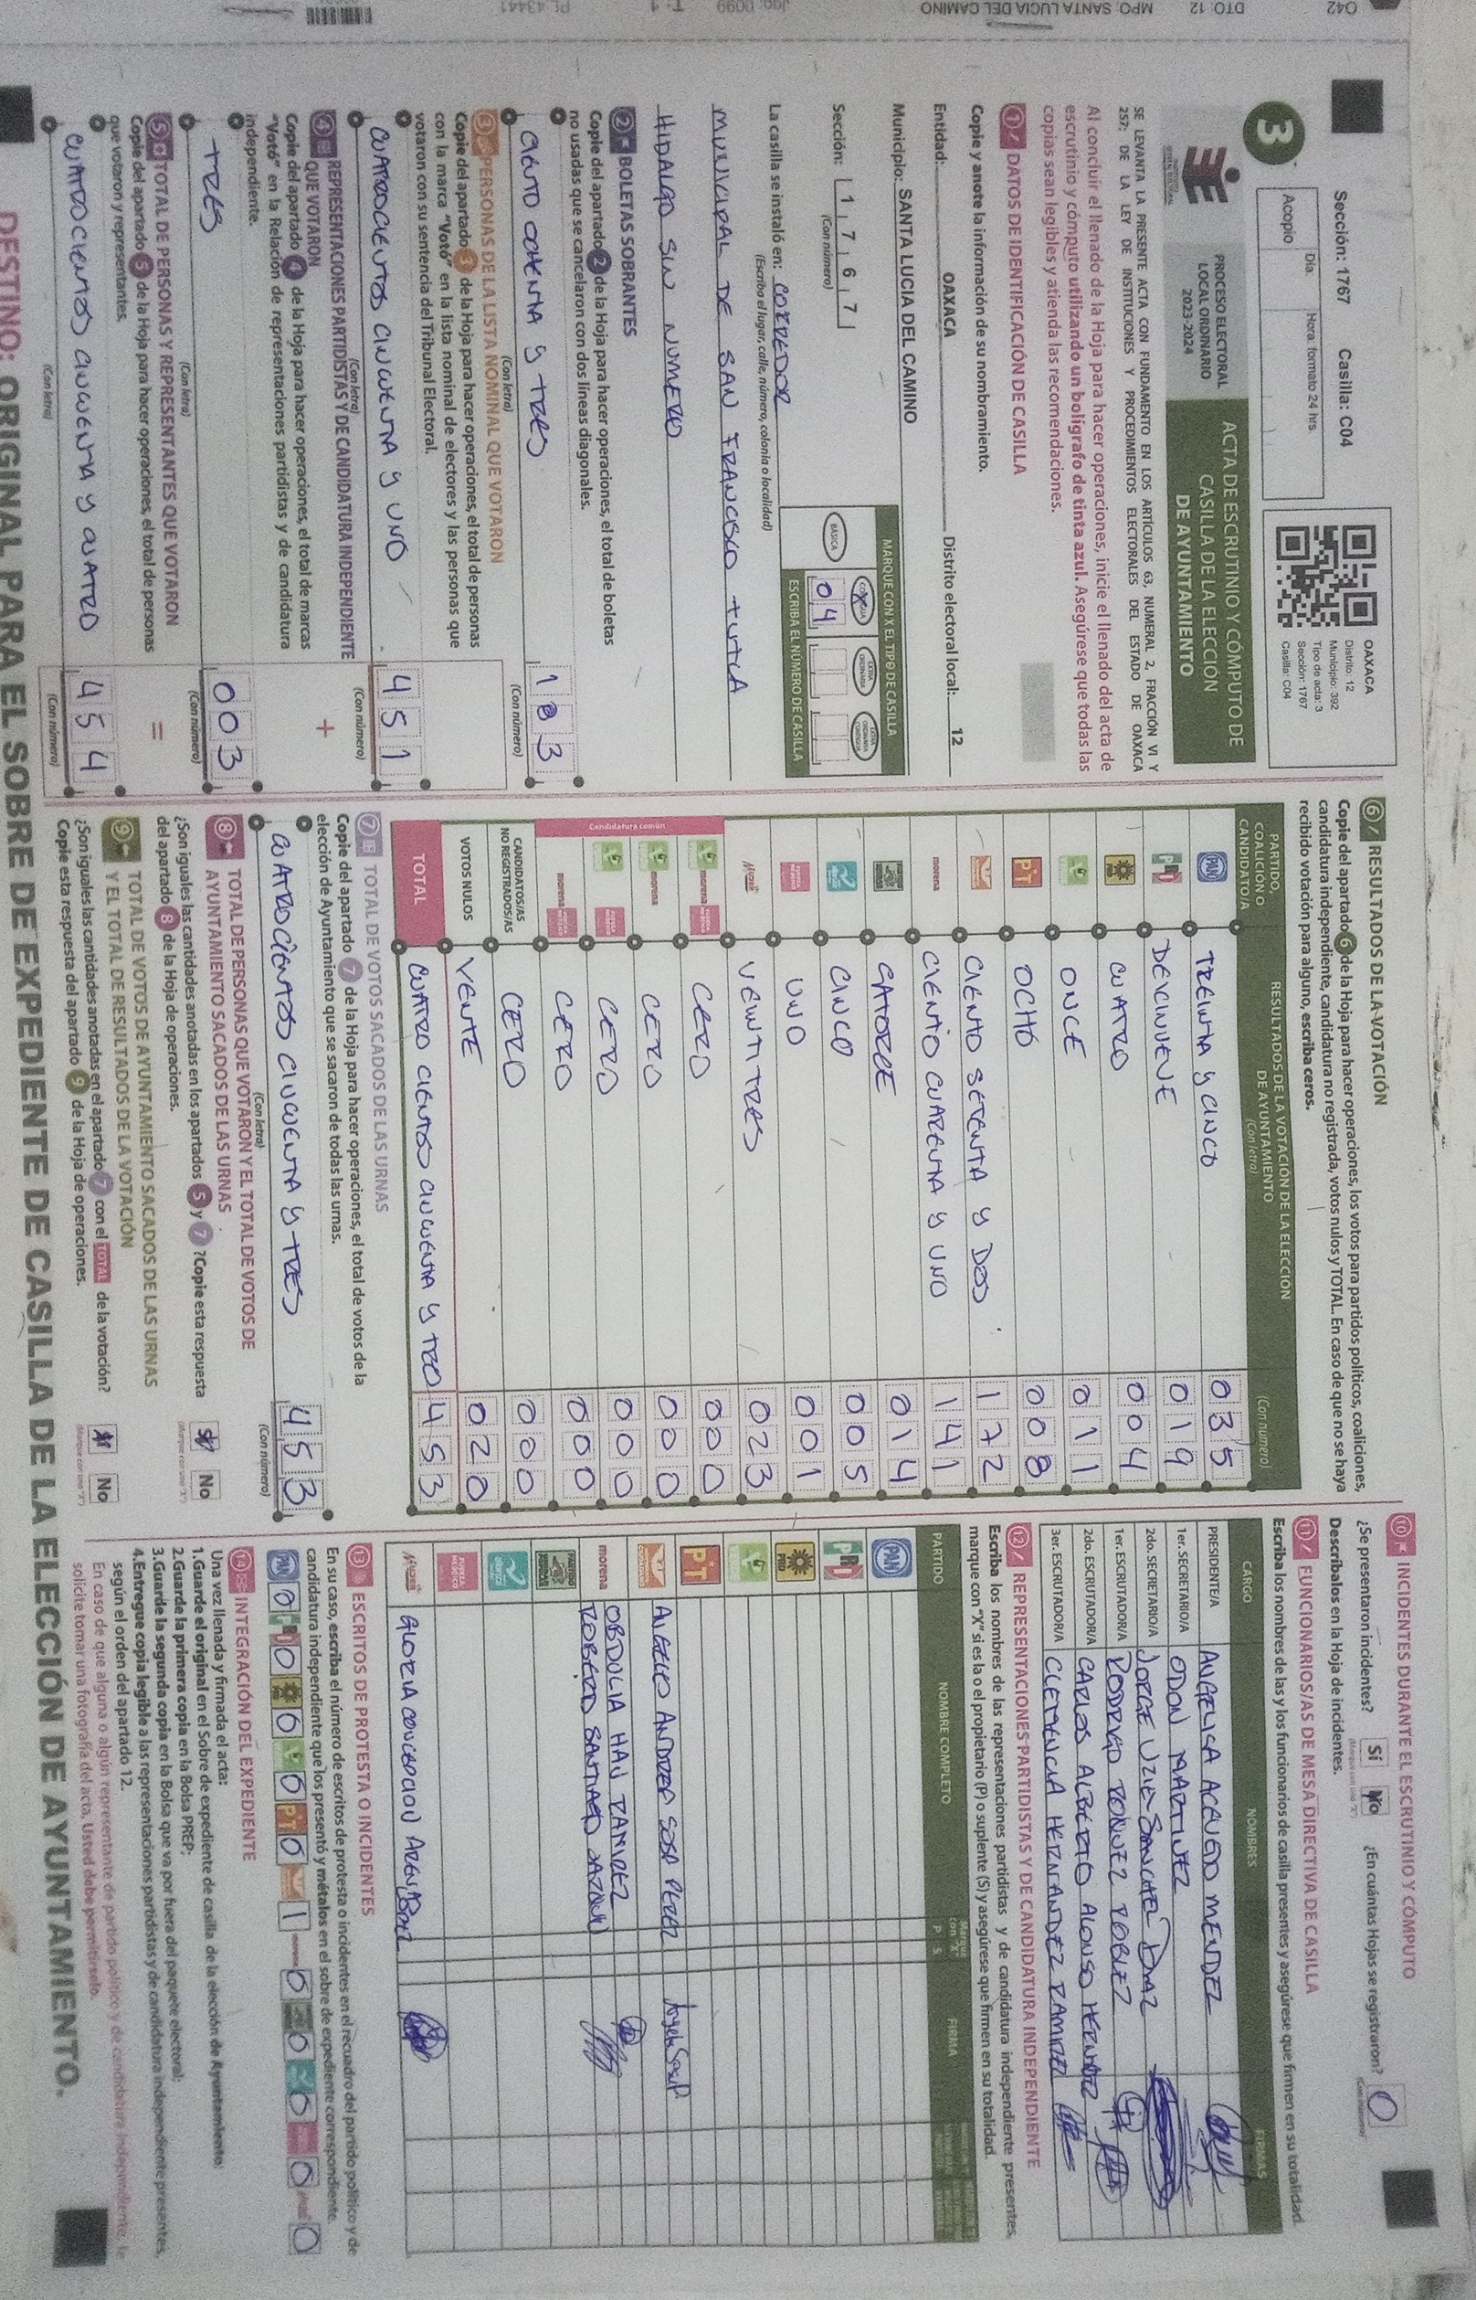 Sección: 1767 Casilla: C04
3
Acopio
Día:
Hora: formato 24 hrs.
OAXACA
Distrito: 12
Municipio: 392
Tipo de acta: 3
Sección: 1767
Casilla: C04
PROCESO ELECTORAL
LOCAL ORDINARIO
2023-2024
ACTA DE ESCRUTINIO Y CÓMPUTO DE
CASILLA DE LA ELECCIÓN
DE AYUNTAMIENTO
SE LEVANTA LA PRESENTE ACTA CON FUNDAMENTO EN LOS ARTÍCULOS 63, NUMERAL 2, FRACCIÓN VI Y
257; DE LA LEY DE INSTITUCIONES Y PROCEDIMIENTOS ELECTORALES DEL ESTADO DE OAXACA
Al concluir el llenado de la Hoja para hacer operaciones, inicie el llenado del acta de
escrutinio y cómputo utilizando un bolígrafo de tinta azul. Asegúrese que todas las
copias sean legibles y atienda las recomendaciones.
1 DATOS DE IDENTIFICACIÓN DE CASILLA
Copie y anote la información de su nombramiento.
Entidad: OAXACA Distrito electoral local: 12
Municipio: SANTA LUCIA DEL CAMINO
Sección: 1 7 6 7
(Con número)
MARQUE CON X EL TIPO DE CASILLA
BÁSICA
04
ESCRIBA EL NÚMERO DE CASILLA
La casilla se instaló en: CORREDOR
(Escriba el lugar, calle, número, colonia o localidad)
MUNICIPAL DE SAN FRANCISCO TUTLA
HIDALGO SIN NUMERO
2 BOLETAS SOBRANTES
Copie del apartado 2 de la Hoja para hacer operaciones, el total de boletas
no usadas que se cancelaron con dos líneas diagonales.
CIENTO OCHENTA Y TRES 183
(Con letra) (Con número)
3 PERSONAS DE LA LISTA NOMINAL QUE VOTARON
Copie del apartado 3 de la Hoja para hacer operaciones, el total de personas
con la marca "Votó" en la lista nominal de electores y las personas que
votaron con su sentencia del Tribunal Electoral.
CUATROCIENTOS CINCUENTA Y UNO 451
(Con letra) (Con número)
4 REPRESENTACIONES PARTIDISTAS Y DE CANDIDATURA INDEPENDIENTE
QUE VOTARON
+
Copie del apartado 4 de la Hoja para hacer operaciones, el total de marcas
"Votó" en la Relación de representaciones partidistas y de candidatura
independiente.
TRES 003
(Con letra) (Con número)
5 TOTAL DE PERSONAS Y REPRESENTANTES QUE VOTARON
=
Copie del apartado 5 de la Hoja para hacer operaciones, el total de personas
que votaron y representantes.
CUATROCIENTOS CINCUENTA Y CUATRO 454
(Con letra) (Con número)
6 RESULTADOS DE LA VOTACIÓN
Copie del apartado 6 de la Hoja para hacer operaciones, los votos para partidos políticos, coaliciones,
candidatura independiente, candidatura no registrada, votos nulos y TOTAL. En caso de que no se haya
recibido votación para alguno, escriba ceros.
PARTIDO,
COALICIÓN O
CANDIDATO/A
RESULTADOS DE LA VOTACIÓN DE LA ELECCIÓN
DE AYUNTAMIENTO
(Con letra)
(Con número)
PAN TREINTA Y CINCO 035
PRI DEICINUEVE 019
PRD CUATRO 004
ONCE 011
PT OCHO 008
CIENTO SETENTA Y DOS 172
morena CIENTO CUARENTA Y UNO 141
CATORCE 014
CINCO 005
UNO 001
VEINTI TRES 023
Candidatura común
morena CERO 000
morena CERO 000
CERO 000
morena CERO 000
CANDIDATOS/AS
NO REGISTRADOS/AS
CERO 000
VOTOS NULOS VENTE 020
TOTAL CUATRO CIENTOS CINCUENTA Y TRES 453
7 TOTAL DE VOTOS SACADOS DE LAS URNAS
Copie del apartado 7 de la Hoja para hacer operaciones, el total de votos de la
elección de Ayuntamiento que se sacaron de todas las urnas.
CUATROCIENTOS CINCUENTA Y TRES 453
(Con letra) (Con número)
8 TOTAL DE PERSONAS QUE VOTARON Y EL TOTAL DE VOTOS DE
AYUNTAMIENTO SACADOS DE LAS URNAS
¿Son iguales las cantidades anotadas en los apartados 5 y 7 ?Copie esta respuesta
del apartado 8 de la Hoja de operaciones.
Sí No
9 TOTAL DE VOTOS DE AYUNTAMIENTO SACADOS DE LAS URNAS
Y EL TOTAL DE RESULTADOS DE LA VOTACIÓN
¿Son iguales las cantidades anotadas en el apartado 7 con el TOTAL de la votación?
Copie esta respuesta del apartado 9 de la Hoja de operaciones.
Sí No
10 INCIDENTES DURANTE EL ESCRUTINIO Y CÓMPUTO
¿Se presentaron incidentes? Sí No ¿En cuántas Hojas se registraron? 0
Descríbalos en la Hoja de incidentes.
11 FUNCIONARIOS/AS DE MESA DIRECTIVA DE CASILLA
Escriba los nombres de las y los funcionarios de casilla presentes y asegúrese que firmen en su totalidad.
CARGO NOMBRES FIRMAS
PRESIDENTE/A ANGELICA ACEVEDO MENDEZ
1er. SECRETARIO/A ODON MARTINEZ
2do. SECRETARIO/A JORGE UZIEL SANCHEZ DIAZ
1er. ESCRUTADOR/A RODRIGO
2do. ESCRUTADOR/A CARLOS ALBERTO ALONSO
3er. ESCRUTADOR/A CLEMENCIA HERNANDEZ RAMIREZ
12 REPRESENTACIONES PARTIDISTAS Y DE CANDIDATURA INDEPENDIENTE
Escriba los nombres de las representaciones partidistas y de candidatura independiente presentes,
marque con "X" si es la o el propietario (P) o suplente (S) y asegúrese que firmen en su totalidad.
PARTIDO NOMBRE COMPLETO Marque con "X" P S FIRMA
PAN
PRI
PRD
PT
ANDREA SOSA PEREZ
morena OBDOLIA HAN RAMIREZ
SANTIAGO
GLORIA CONCEPCION
13 ESCRITOS DE PROTESTA O INCIDENTES
En su caso, escriba el número de escritos de protesta o incidentes en el recuadro del partido político y de
candidatura independiente que los presentó y métalos en el sobre de expediente correspondiente.
PAN 0 PRI 0 PRD 0 0 PT 0 1 0 0 0 0 0
14 INTEGRACIÓN DEL EXPEDIENTE
Una vez llenada y firmada el acta:
1.Guarde el original en el Sobre de expediente de casilla de la elección de Ayuntamiento;
2.Guarde la primera copia en la Bolsa PREP;
3.Guarde la segunda copia en la Bolsa que va por fuera del paquete electoral;
4.Entregue copia legible a las representaciones partidistas y de candidatura independiente presentes,
según el orden del apartado 12.
En caso de que alguna o algún representante de partido político y de candidatura independiente, le
solicite tomar una fotografía del acta, Usted debe permitírselo.
DESTINO: ORIGINAL PARA EL SOBRE DE EXPEDIENTE DE CASILLA DE LA ELECCIÓN DE AYUNTAMIENTO.
042 DTO: 12 MPO: SANTA LUCIA DEL CAMINO